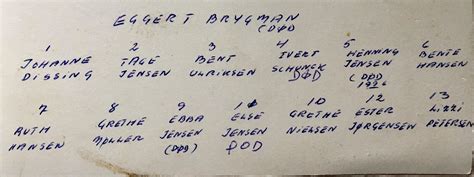 EGGERT BRYGMAN
(DØD
1 2 3 4 5 6
JOHANNE TAGE BENT IVERT HENNING BENTE
DISSING JENSEN ULRIKSEN SCHUNCK JENSEN HANSEN
DØD (DØD
1996
7 8 9 11 10 12 13
RUTH GRETHE EBBA ELSE GRETHE ESTER LIZZI
HANSEN MØLLER JENSEN JENSEN NIELSEN JØRGENSEN PETERSEN
(DØD) DØD